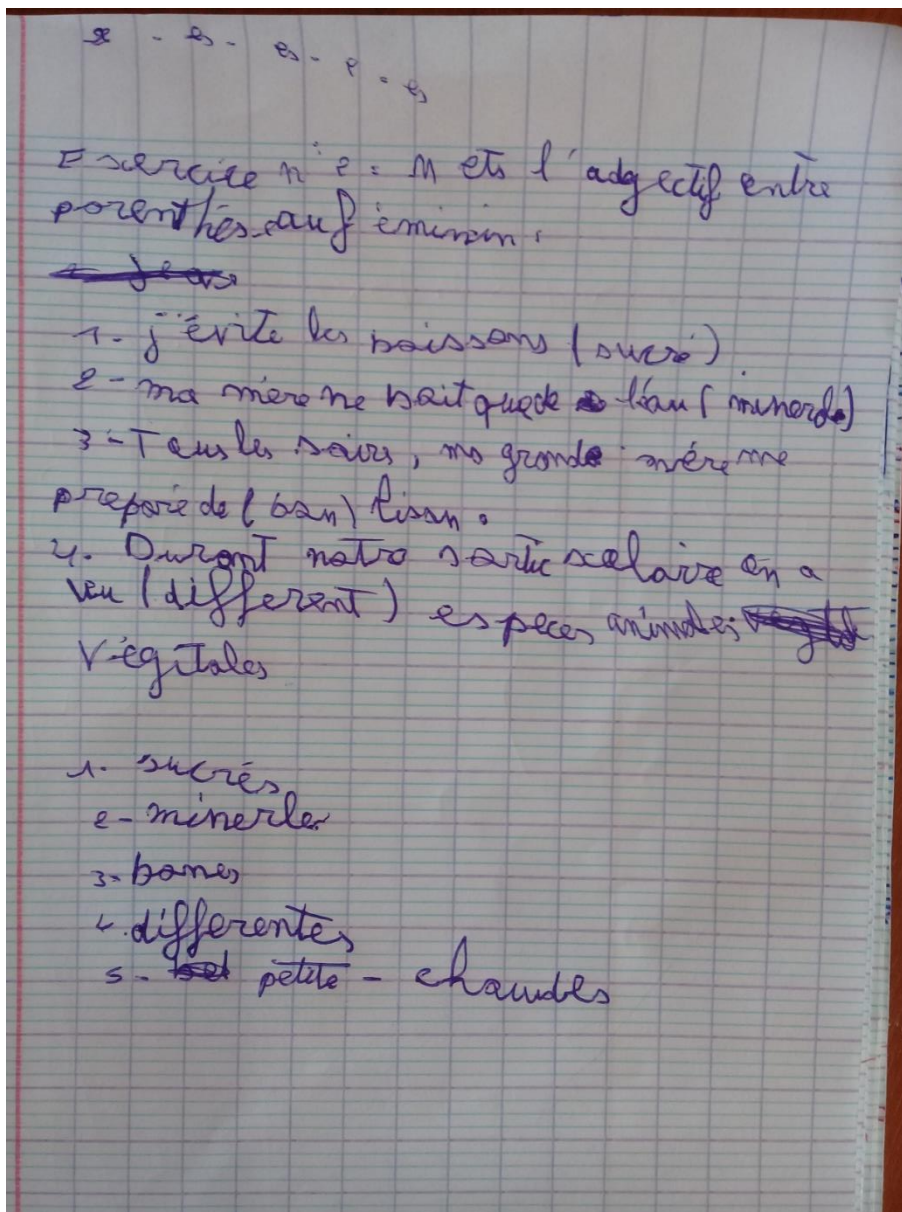 x - es - es - e - es
Exercice n°2 : Mets l'adjectif entre
porenthéseau féminin :
1- j'évite les boissons (sucré)
2- ma mère ne boit que de l'eau (minerd)
3- Tous les soirs, ma grande mére me
prepare de (bon) tisan.
4. Durant notre sortie scolaire on a
vu (different) especes animales
Végitales
1- sucrés
2- minerle
3- bones
4. differentes
5- petite - chaudes